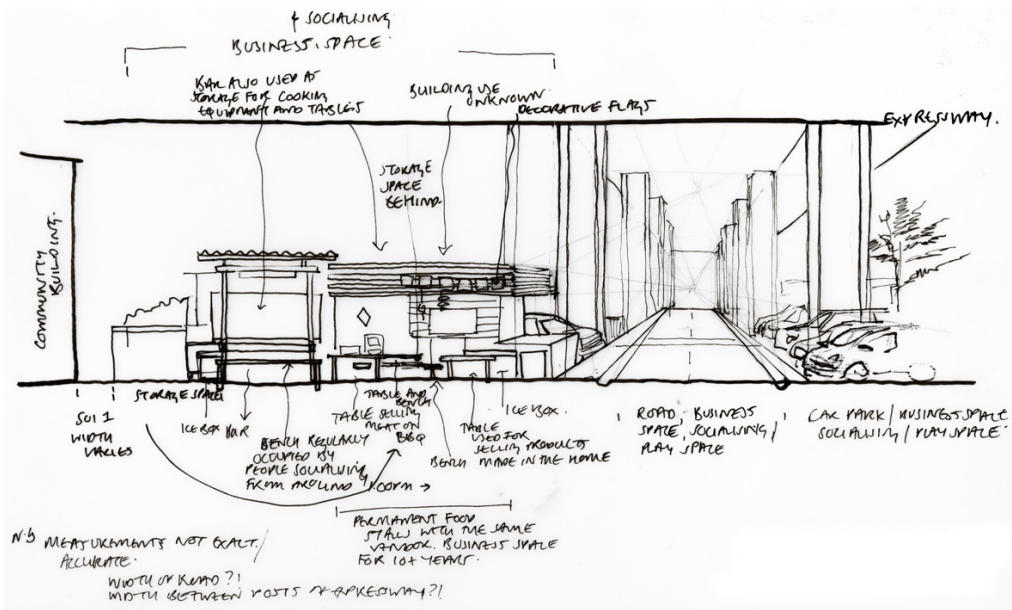 & SOCIALISING
BUSINESS SPACE
BAR ALSO USED AS
STORAGE FOR COOKING
EQUIPMENT AND TABLES
BUILDING USE
UNKNOWN
DECORATIVE FLAGS
EXPRESSWAY.
STORAGE
SPACE
BEHIND.
COMMUNITY
BUILDING.
STORAGE SPACE
SOI 1
WIDTH
VARIES
ICE BOX
BAR
BENCH REGULARLY
OCCUPIED BY
PEOPLE SOCIALISING
FROM AROUND 1.00PM →
TABLE SELLING
MEAT ON
BBQ
TABLE AND
BENCH
BENCH
TABLE
USED FOR
SELLING PRODUCTS
MADE IN THE HOME
ICE BOX.
ROAD: BUSINESS
SPACE, SOCIALISING /
PLAY SPACE
CAR PARK / BUSINESS SPACE
SOCIALISING / PLAY SPACE
PERMANENT FOOD
STALLS WITH THE SAME
VENDOR. BUSINESS SPACE
FOR 10+ YEARS.
N.B MEASUREMENTS NOT EXACT /
ACCURATE.
WIDTH OF ROAD?!
WIDTH BETWEEN POSTS OF EXPRESSWAY?!